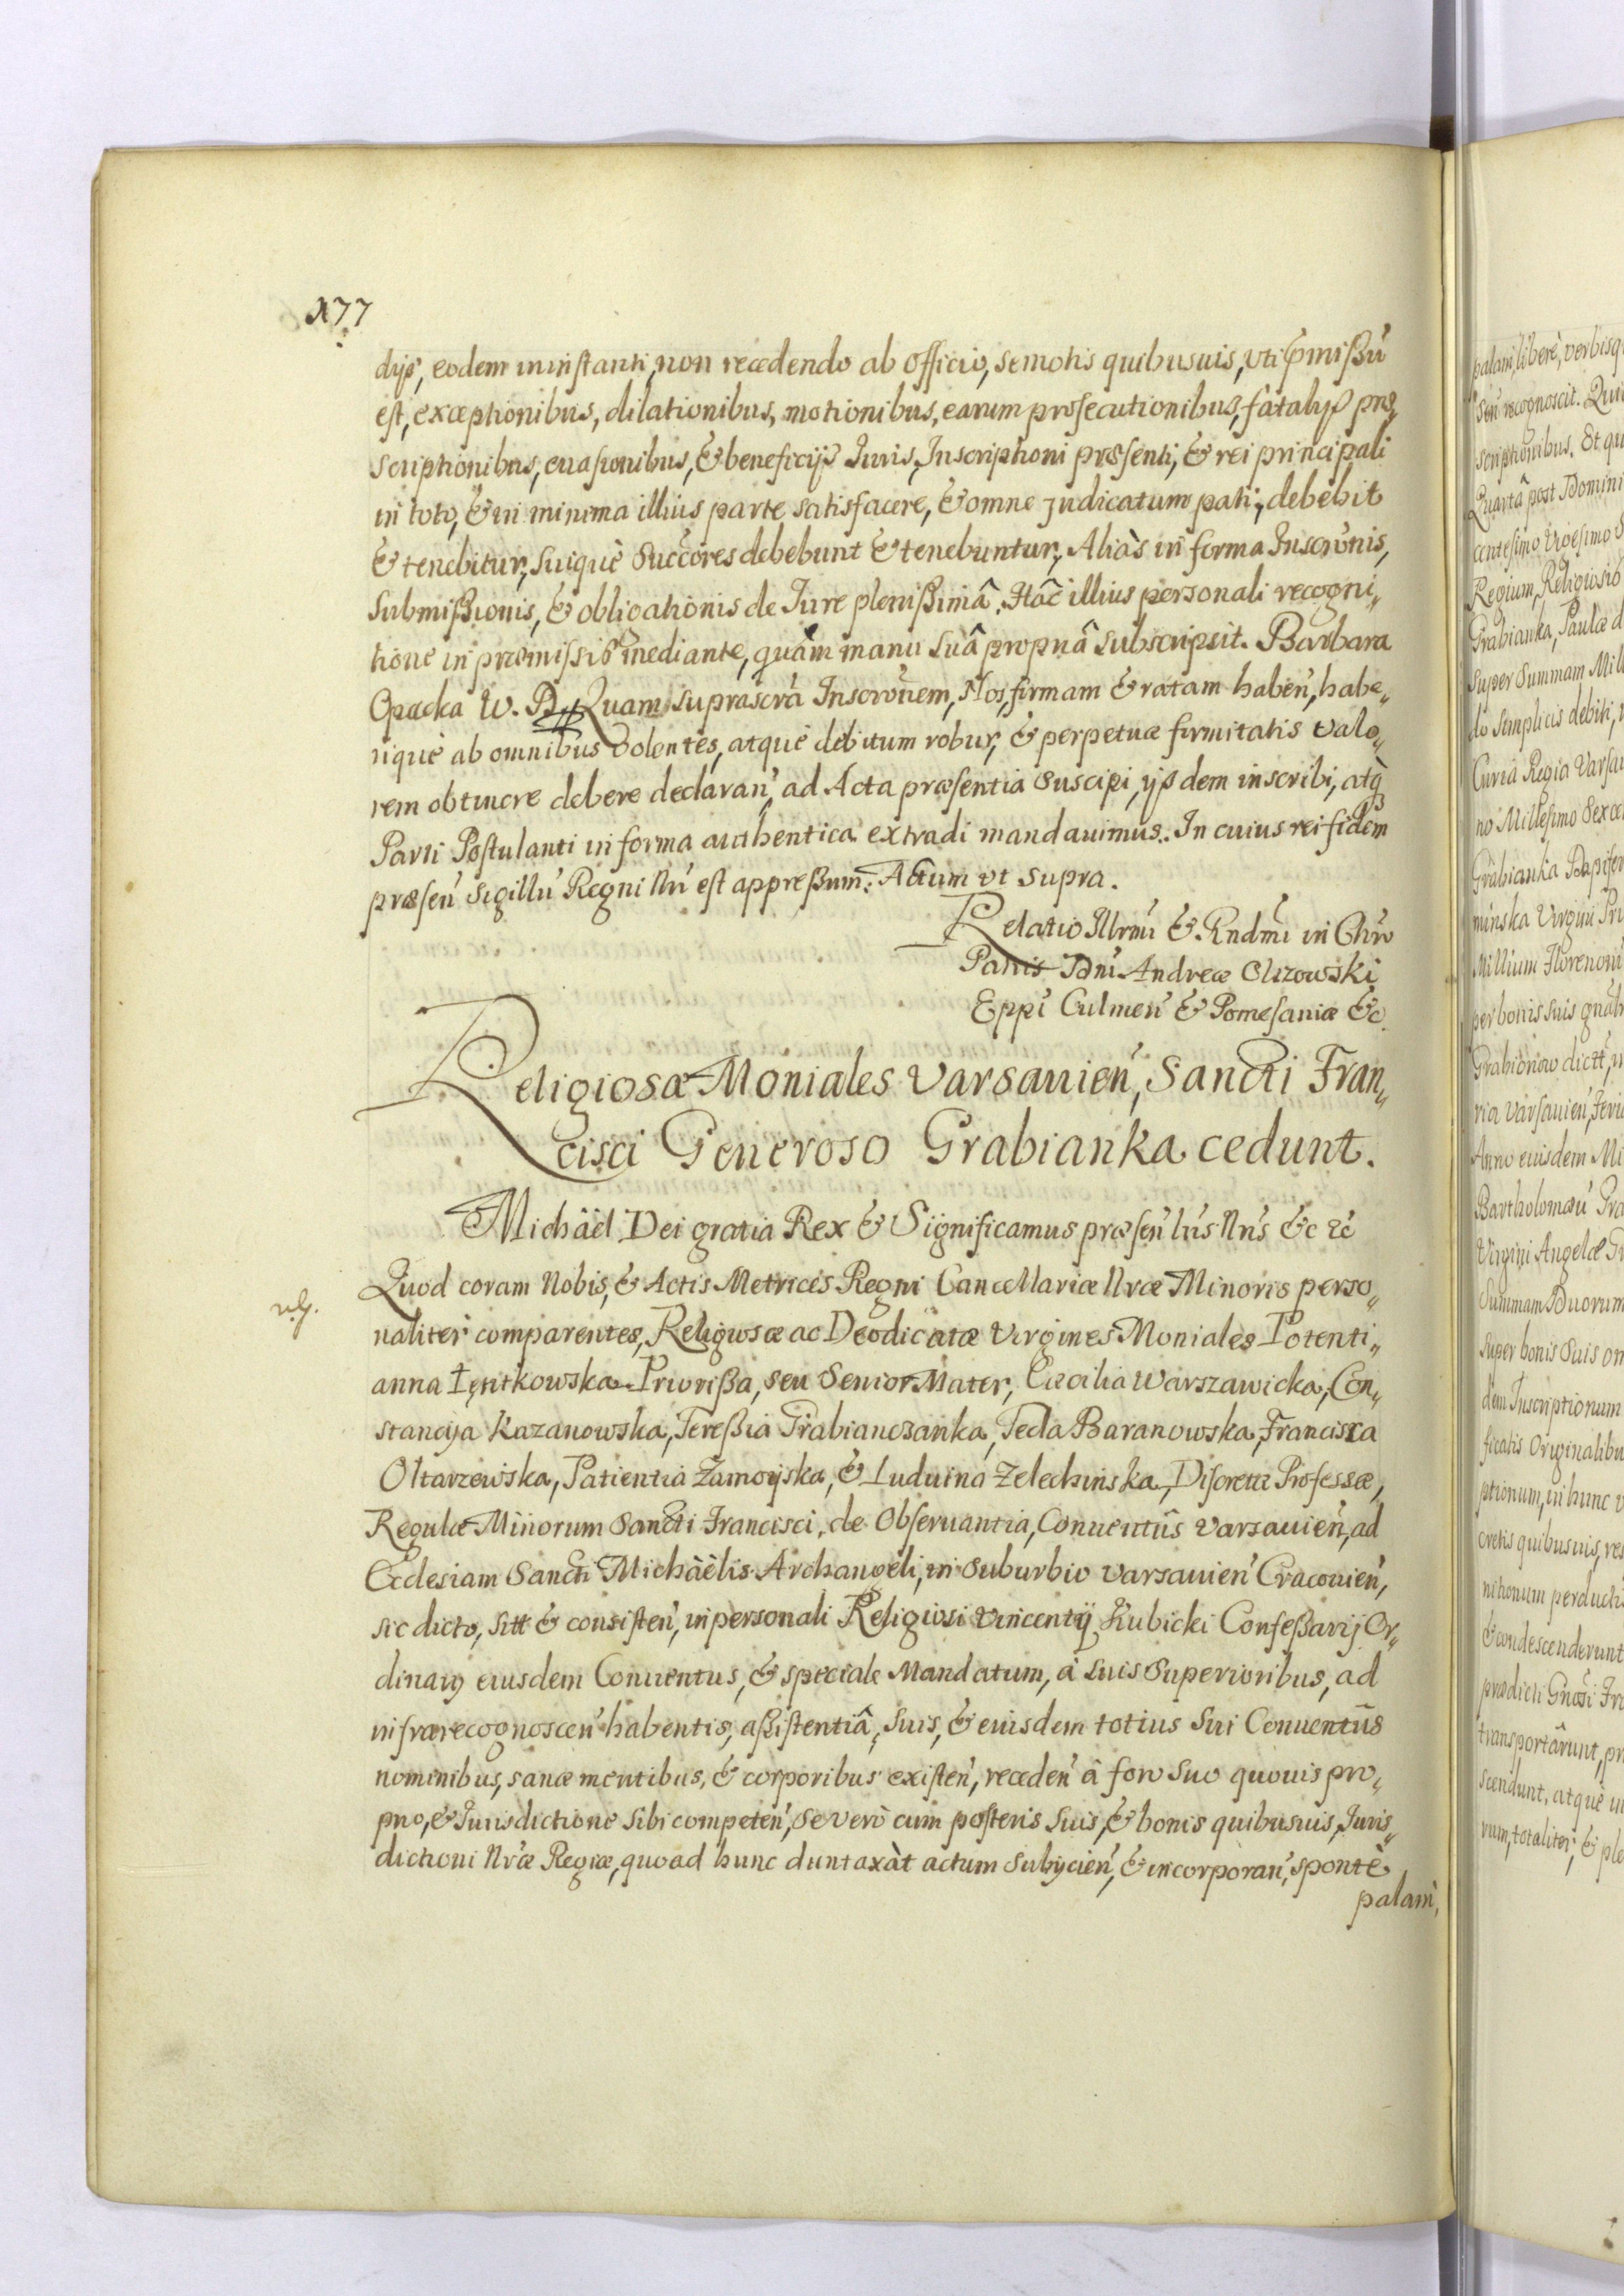 177
dijs, eodem in instanti, non recedendo ab officio, semotis quibusuis, vti pmißũ
est, exceptionibus, dilationibus, motionibus, earum prosecutionibus, fatalijs præ
scriptionibus, euasionibus, & beneficijs Iuris, Inscriptioni præsenti, & rei principali
in toto, & in minima illius parte satisfacere, & omne judicatum pati, debebit
& tenebitur, suiquè Succores debebunt & tenebuntur, Aliàs in forma Inscrõnis,
submißionis, & obligationis de Iure plenißimâ. Hâc illius personali recogni„
tione in præmissis mediante, quàm manu suâ propriâ subscripsit. Barbara
Opacka W. B. Quam suprascrã Inscrõnem, Nos, firmam & ratam haben̄, habe„
riquè ab omnibus volentes, atquè debitum robur, & perpetuæ firmitatis valo„
rem obtinere debere declaran̄, ad Acta præsentia suscipi, ijsdem inscribi, atq̀
Parti Postulanti in forma authentica extradi mandauimus. In cuius rei fidem
præsen̄ Sigillũ Regni Nrĩ est appreßum. Actum vt supra.
Relatio Illrmi & Rndmi in Chrõ
Patris Dni Andreæ Olszowski
Eppi Culmen̄ & Pomesaniæ &c.
Religiosæ Moniales Varsauien̄, Sancti Fran„
cisci Generoso Grabianka cedunt.
Michâël Dei gratia Rex & Significamus præsen̄ lrĩs Nrĩs &c &c
Quod coram Nobis, & Actis Metrices Regni Cancellariæ Nræ Minoris perso„
naliter comparentes, Religiosæ ac Deodicatæ Virgines Moniales Potenti„
anna Łętkowska Priorißa, seu Senior Mater, Cæcilia Warszawicka, Con„
stancija Kazanowska, Tereßia Grabianczanka, Tecla Baranowska, Francisca
Ołtarzewska, Patientia Zamoijska, & Luduina Zelechinska, Discretæ Professæ,
Regulæ Minorum Sancti Francisci, de Obseruantia, Conuentûs Varsauien̄, ad
Ecclesiam Sancti Michàëlis Archangeli, in Suburbio Varsauien̄ Cracouien̄,
sic dicto, sitt & consisten̄, in personali Religiosi Vincentij Kubicki Confeßarij Or„
dinarij eiusdem Conuentus, & speciale Mandatum, à suis Superioribus, ad
infra recognoscen̄ habentis, aßistentiâ, suis, & eiusdem totius sui Conuentûs
nominibus, sanæ mentibus, & corporibus existen̄, receden̄ â foro suo quouis pro„
prio, & Iurisdictione sibi competen̄, se verò cum posteris suis, & bonis quibusuis, Iuris„
dictioni Nræ Regiæ, quo ad hunc duntaxàt actum subijcien̄, & incorporan̄, spontè
palam,
palam, liberè, verbisq
scriptionibus. Et qu
Quartâ post Domini
centesimo Vigesimo S
Regium, Religiosio
Grabianka, Paulæ d
super Summam Mill
do simplicis debiti,
Curia Regia Varsau
no Millesimo Sexce
Grabianka Dapifer
minska Virgini Pri
Millium Florenorũ
per bonis suis gnalt
Grabionow dictt, n
ria Varsauien̄, Feria
Anno eiusdem Mi
Bartholomæũ Gra
Virgini Angelæ Gr
Summam Duorum
super bonis suis om
dem Inscriptionum
ficatis Originalibu
ptionum, in hunc v
cretis quibusuis, res
nitionum perductis
& condescenderunt
prædicti Gnosi Fra
transportârunt, pr
scendunt, atquè in
rum, totaliter, & ple